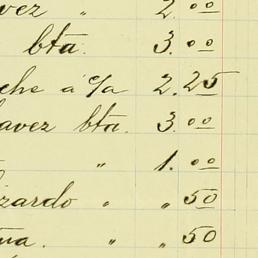 vez " 2.00
bta. 3.00
che á c/a 2.25
avez bta. 3.00
" 1.00
zardo " " 50
na. " " 50